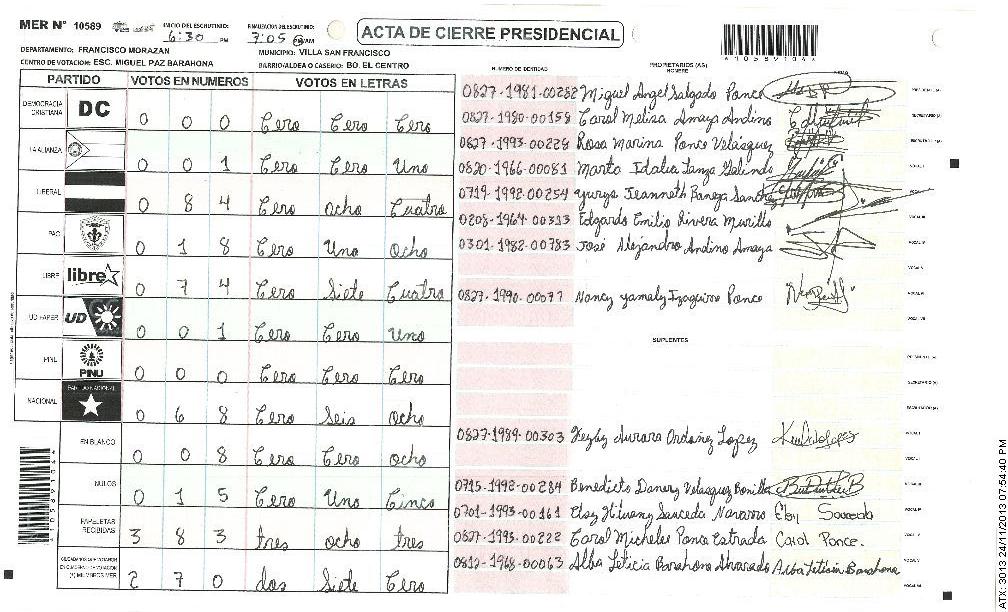 MER N° 10589
INICIO DEL ESCRUTINIO: 6:30 PM
FINALIZACION DEL ESCRUTINIO: 7:05 PM/AM
ACTA DE CIERRE PRESIDENCIAL
DEPARTAMENTO: FRANCISCO MORAZAN
MUNICIPIO: VILLA SAN FRANCISCO
CENTRO DE VOTACION: ESC. MIGUEL PAZ BARAHONA
BARRIO/ALDEA O CASERIO: BO. EL CENTRO
PARTIDO VOTOS EN NUMEROS VOTOS EN LETRAS
DEMOCRACIA CRISTIANA DC 0 0 0 Cero Cero Cero
LA ALIANZA 0 0 1 Cero Cero Uno
LIBERAL 0 8 4 Cero ocho Cuatro
PAC 0 1 8 Cero Uno Ocho
LIBRE libre 0 7 4 Cero Siete Cuatro
UD FAPER UD 0 0 1 Cero Cero Uno
PINU PINU 0 0 0 Cero Cero Cero
NACIONAL PARTIDO NACIONAL 0 6 8 Cero Seis Ocho
EN BLANCO 0 0 8 Cero Cero ocho
NULOS 0 1 5 Cero Uno Cinco
PAPELETAS RECIBIDAS 3 8 3 tres ocho tres
2 7 0 dos Siete Cero
NUMERO DE IDENTIDAD PROPIETARIOS (AS) NOMBRE FIRMA
0827-1981-00282 Miguel Angel Salgado Ponce
0827-1980-00158 Carol Melisa Amaya Andino
0827-1993-00228 Rosa Marina Ponce Velásquez
0820-1966-00081 Marta Idalia Lanza Galindo
0719-1992-00254 Yurys Jeanneth Banega Sanchez
0208-1964-00313 Edgardo Emilio Rivera Murillo
0301-1982-00783 José Alejandro Andino Amaya
0827-1990-00077 Nancy Yamaly Izaguirre Ponce
SUPLENTES
0827-1989-00303 Keyby Aurora Ordoñez Lopez
0715-1992-00284 Benedicto Danery Velasquez Bonilla
0701-1993-00161 Eloy Saucedo Navarro Eloy Saucedo
0827-1993-00222 Carol Michelle Ponce Estrada Carol Ponce.
0812-1968-00063 Alba Leticia Barahona Alvarado Alba Leticia Barahona
ATX: 3013 24/11/2013 07:54:40 PM